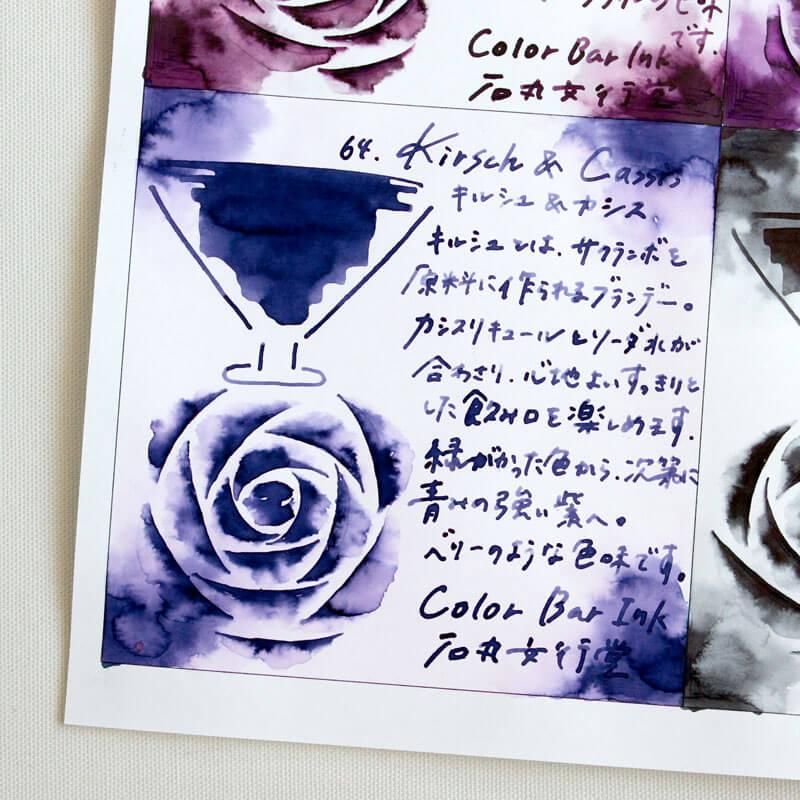 です。
Color Bar Ink
石丸文行堂
64. Kirsch & Cassis
キルシュ&カシス、
キルシュとは、サクランボを
原料に作られるブランデー。
カシスリキュールとソーダ水が
合わさり、心地よいすっきりと
した飲み口を楽しめます。
緑がかった色から、次第に
青みの強い紫へ。
ベリーのような色味です。
Color Bar Ink
石丸文行堂